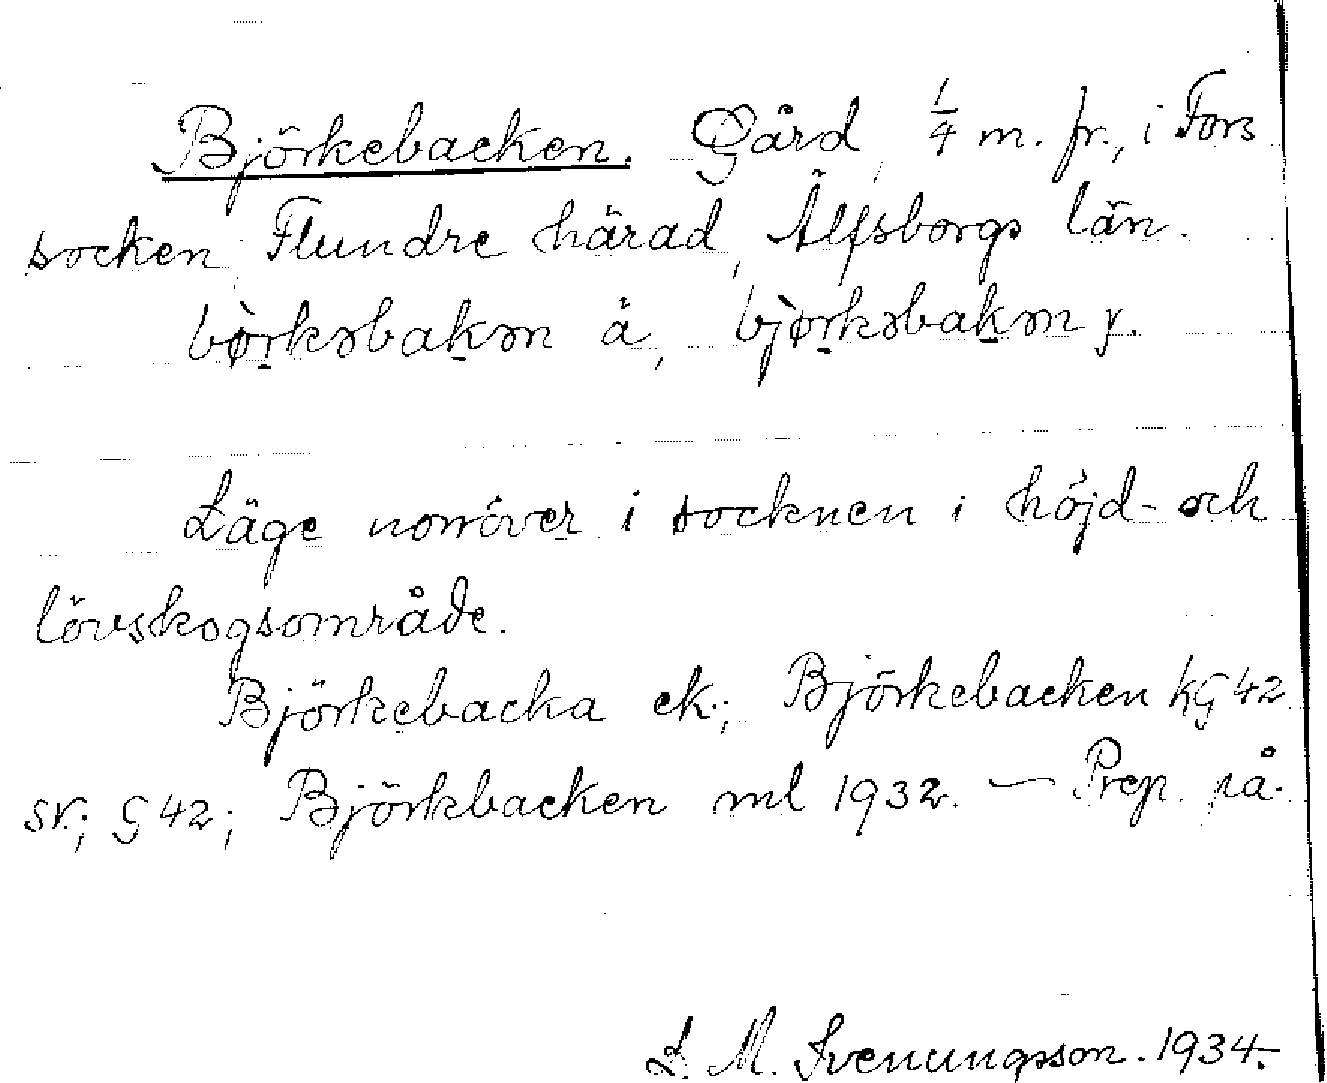 Björkebacken. Gård, 1/4 m. fr., i Fors
socken, Flundre härad, Älfsborgs län.
bø̀rkəbakən ä, bjø̀rkəbakən y.
Läge norröver i socknen i höjd- och
lövskogsområde.
Björkebacka ek.; Björkebacken KG 42
sv.; G 42; Björkbacken ml 1932. — Prep. på.
S. M. Svenungsson. 1934.